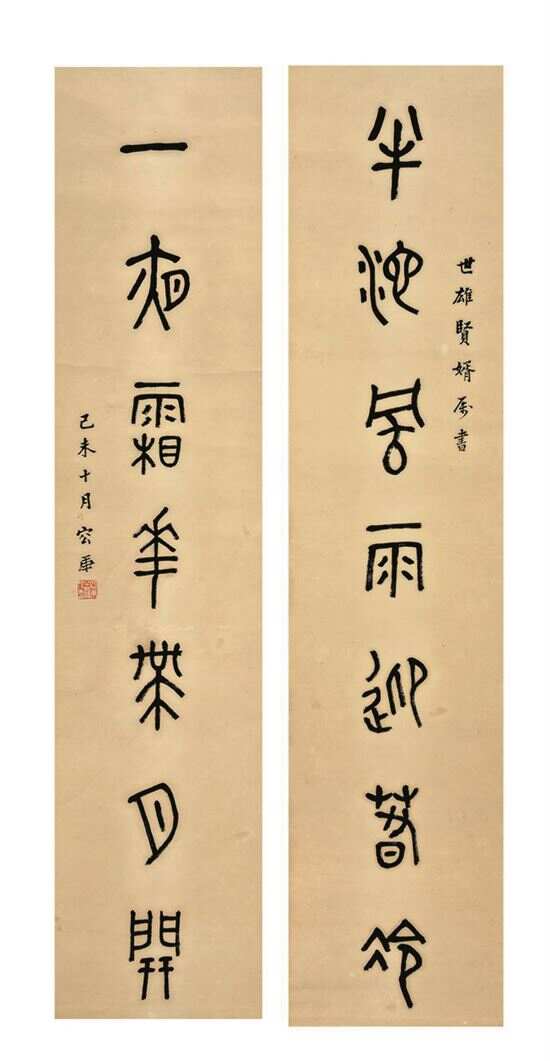 世雄賢婿屬書
半池雨迎春冷
一夜霜華帶月開
己未十月容庚